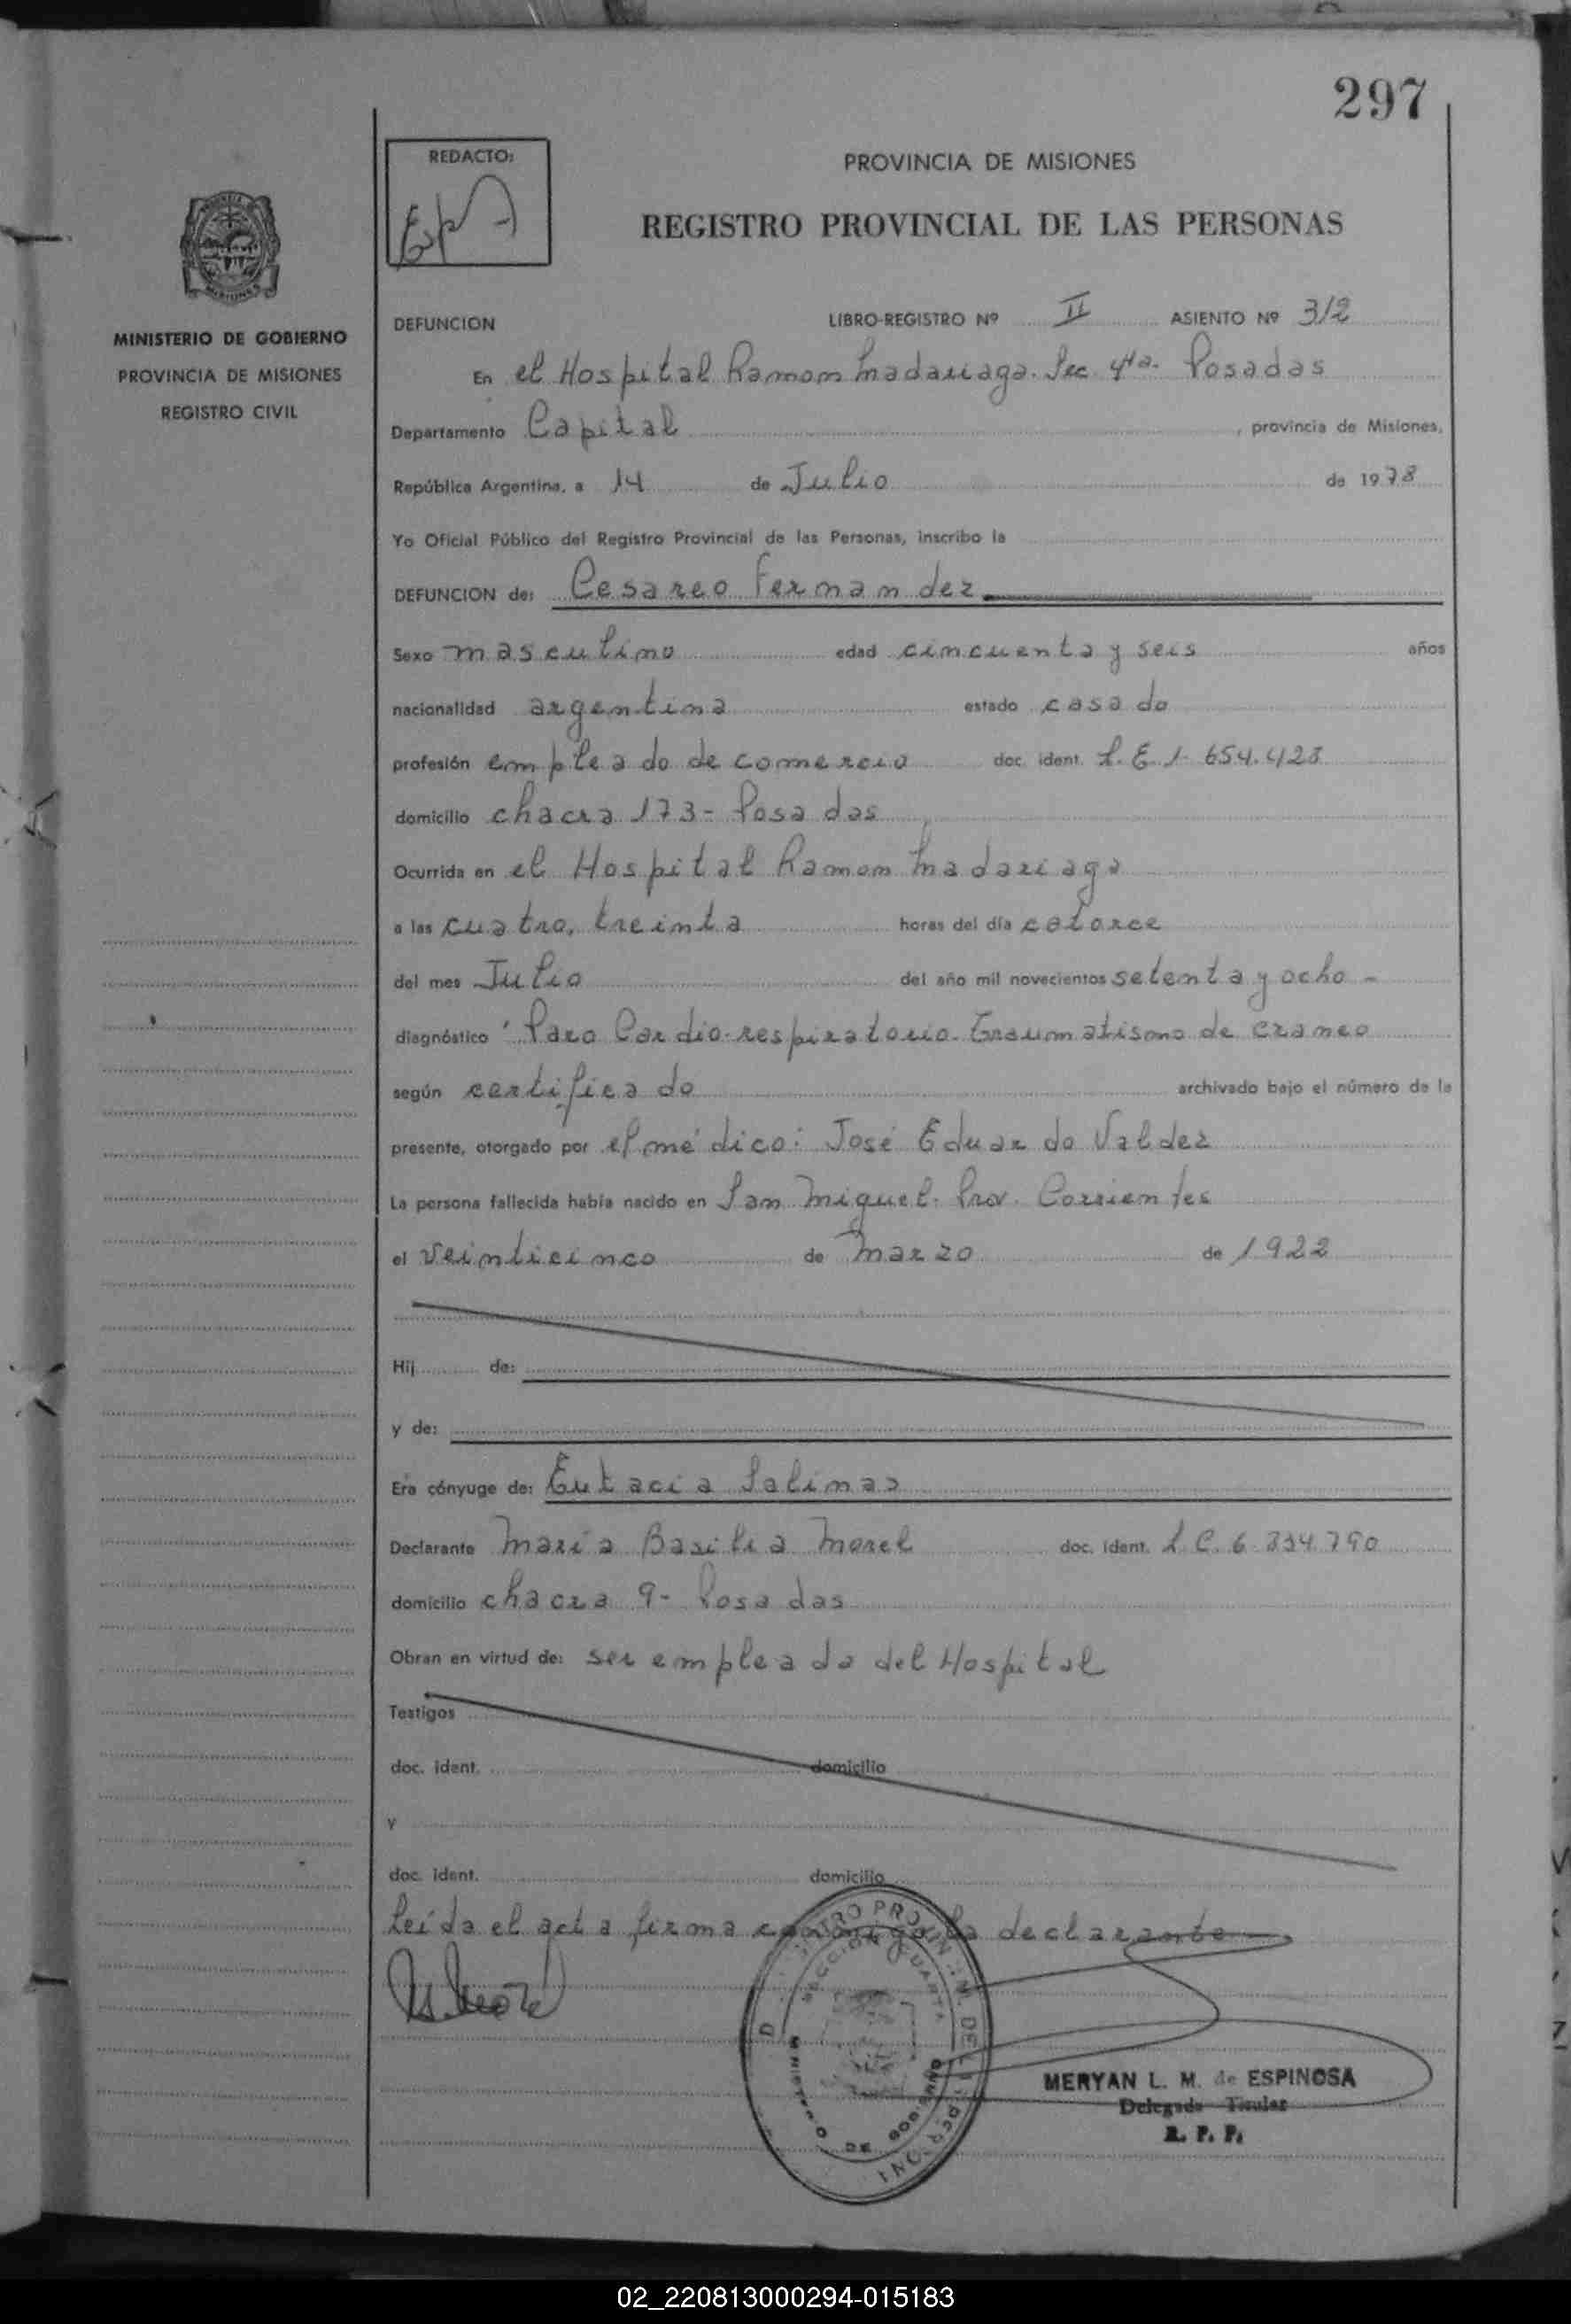 297
REDACTO:
PROVINCIA DE MISIONES
REGISTRO PROVINCIAL DE LAS PERSONAS
MINISTERIO DE GOBIERNO
PROVINCIA DE MISIONES
REGISTRO CIVIL
DEFUNCION LIBRO-REGISTRO Nº II ASIENTO Nº 312
En el Hospital Ramon Madariaga. Sec. 4ta. Posadas
Departamento Capital, provincia de Misiones,
República Argentina, a 14 de Julio de 1978
Yo Oficial Público del Registro Provincial de las Personas, inscribo la
DEFUNCION de: Cesareo Fernandez
Sexo masculino edad cincuenta y seis años
nacionalidad argentina estado casado
profesión empleado de comercio doc. ident. L.E. 1.654.423
domicilio chacra 173- Posadas
Ocurrida en el Hospital Ramon Madariaga
a las cuatro, treinta horas del día catorce
del mes Julio del año mil novecientos setenta y ocho -
diagnóstico Paro Cardio-respiratorio. Traumatismo de craneo
según certificado archivado bajo el número de la
presente, otorgado por el médico: José Eduardo Valdez
La persona fallecida había nacido en San Miguel. Prov. Corrientes
el veinticinco de marzo de 1922
Hij de:
y de:
Era cónyuge de: Eutacia Salinas
Declarante Maria Basilia Morel doc. ident. L.C. 6.334.790
domicilio chacra 9- Posadas
Obran en virtud de: ser empleada del Hospital
Testigos
doc. ident. domicilio
y
doc. ident. domicilio
Leída el acta firma conmigo la declarante
SECCION CUARTA
MINISTERIO DE GOBIERNO
MERYAN L. M. de ESPINOSA
Delegada Titular
R. P. P.
02_220813000294-015183